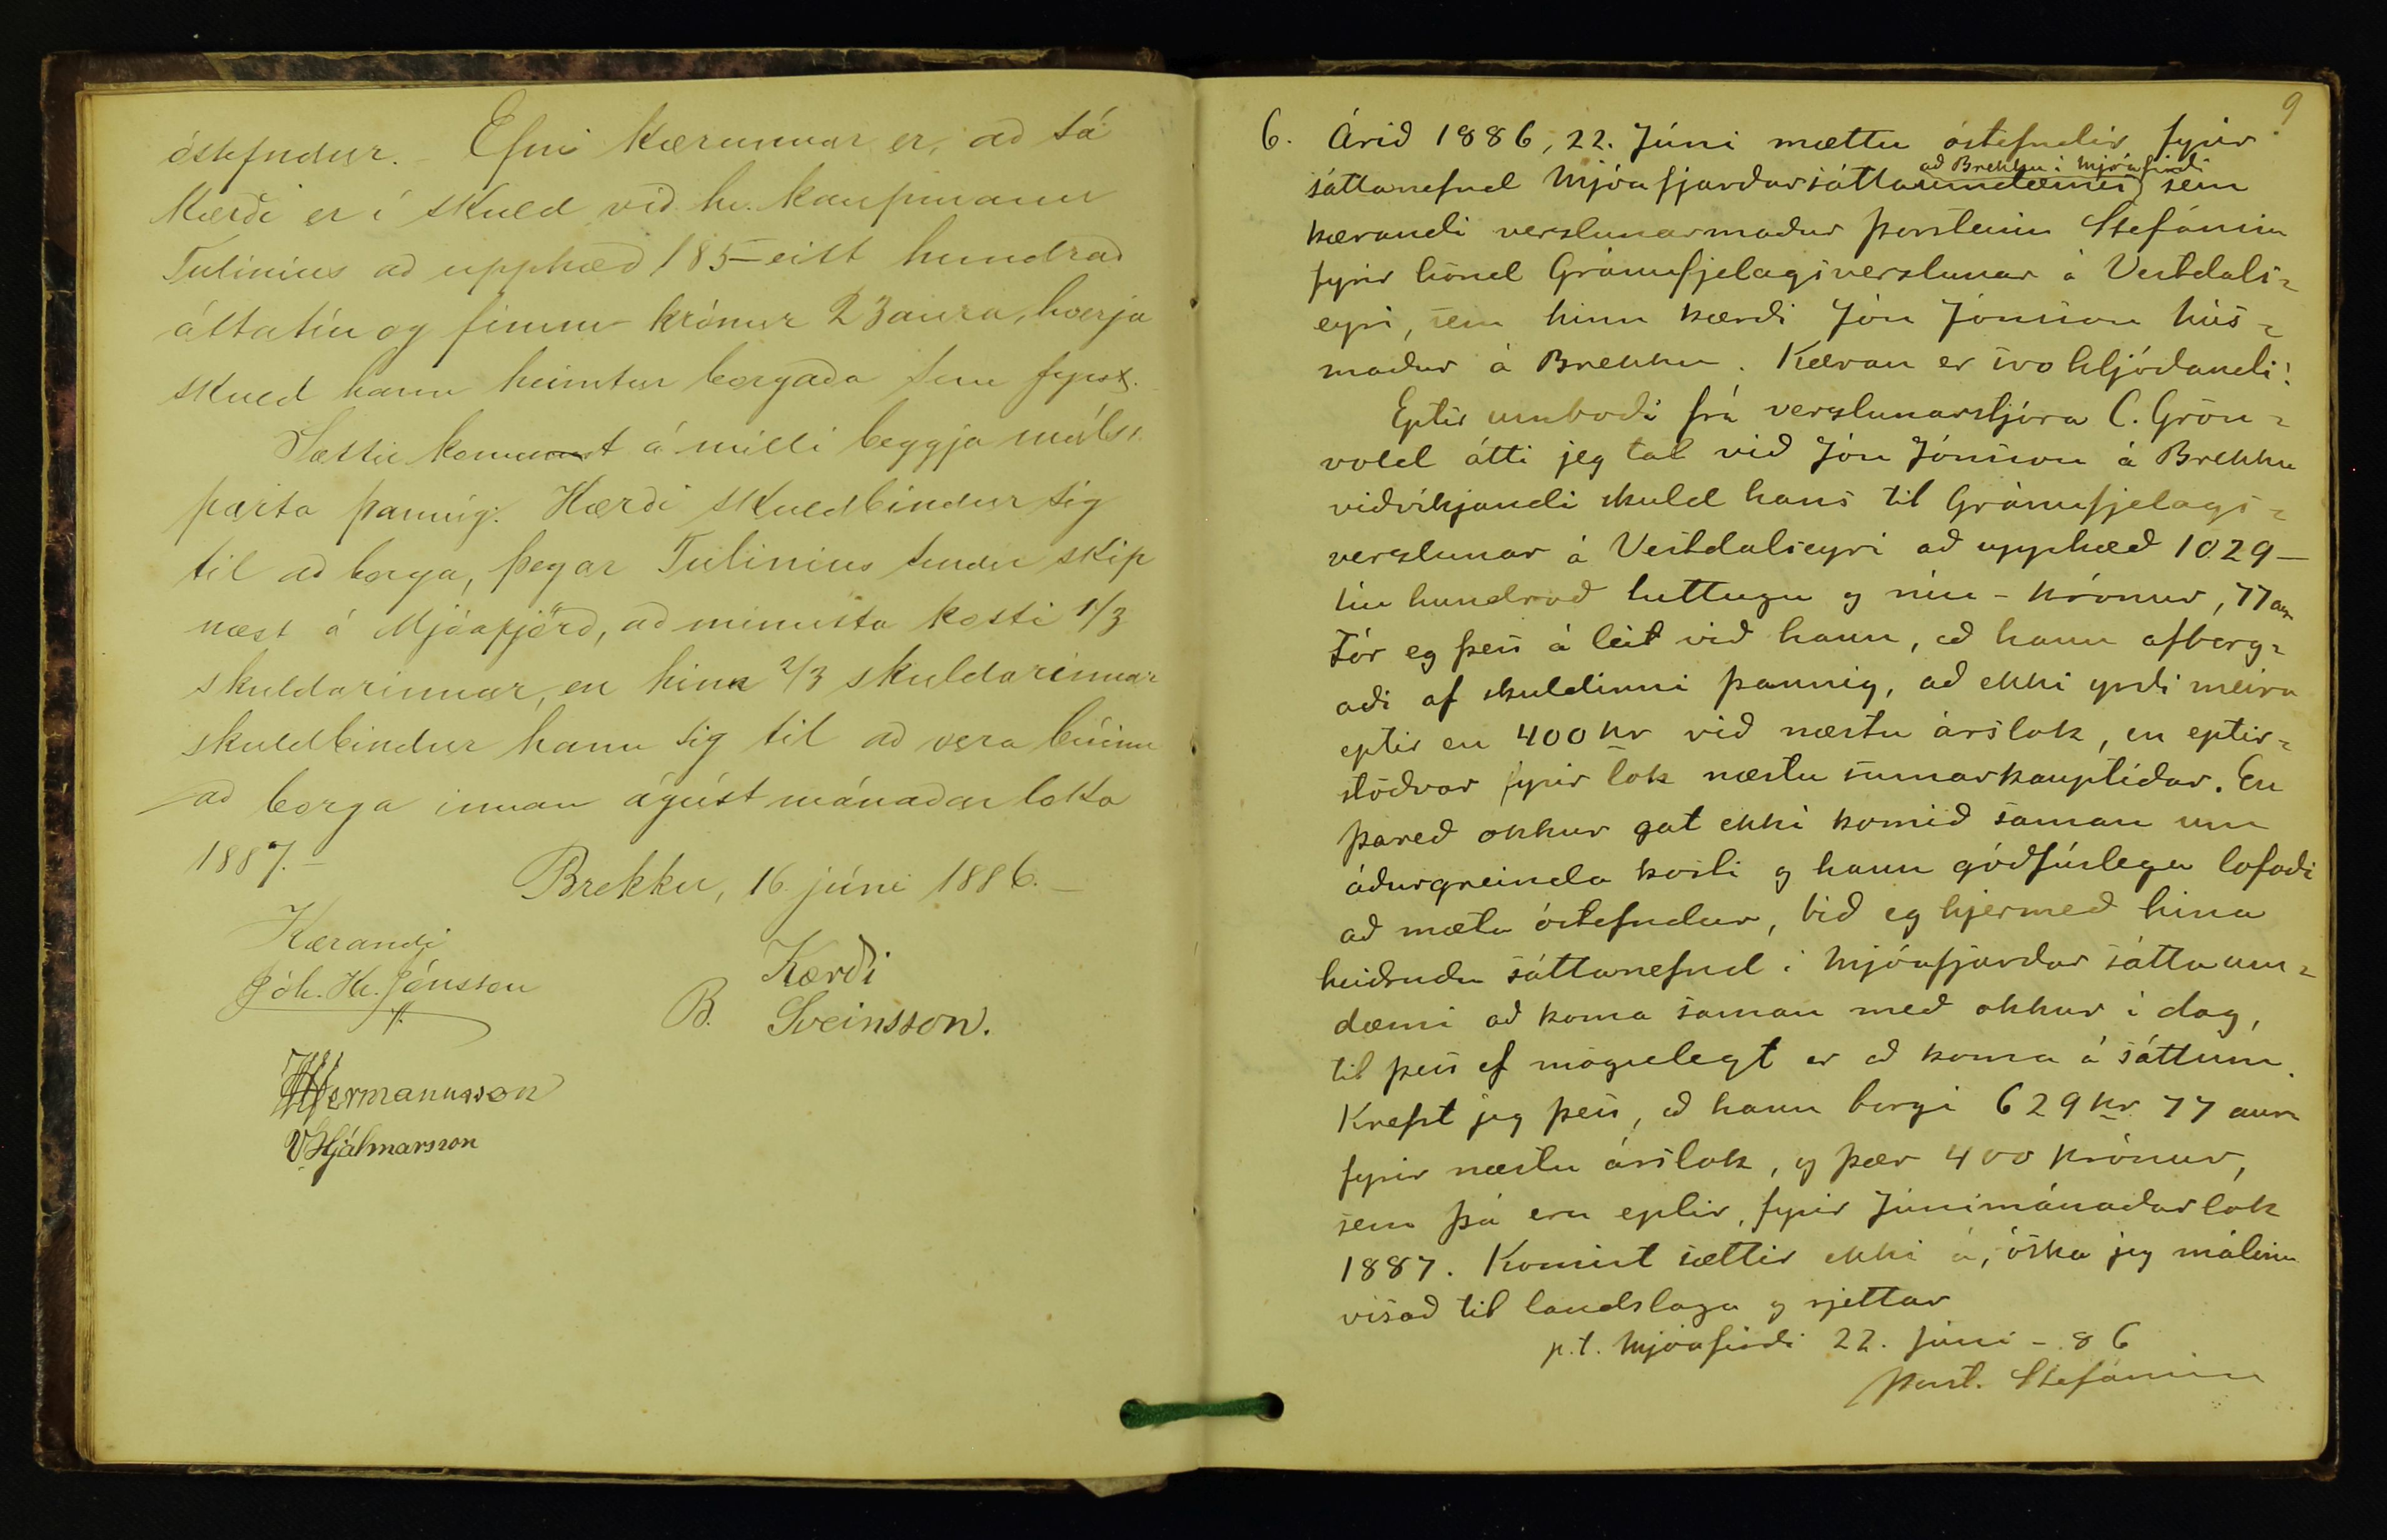 óstefndur. - Efni kærunnar er, að sá
kærði er í skuld við hr. kaupmann
Tulinius að upphæð 185 - eitt hundrað
áttatíu og fimm - krónur 23 aura, hverja
skuld hann heimtar borgaða sem fyrst.
Sættir komust á milli beggja máls-
parta þannig: Kærði skuldbindur sig
til að borga, þegar Tulinius sendir skip
næst á Mjóafjörð, að minnsta kosti 1/3
skuldarinnar, en hina 2/3 skuldarinnar
skuldbindur hann sig til að vera búinn
að borga innan ágúst mánaðar loka
1887. -
Brekku, 16. júní 1886. -
Kærandi
Jóh. Kr. Jónsson
Kærði
B. Sveinsson.
HHermannsson
VHjálmarsson
9
6. Árið 1886, 22. Júni mættu óstefndir fyrir
að Brekku í Mjóafirði
sáttanefnd Mjóafjarðarsáttaumdæmis sem
kærandi verslunarmaður Þorsteinn Stefánsson
fyrir hönd Gránufjelagsverslunar á Vestdals-
eyri, sem hinn kærði Jón Jónsson hús-
maður á Brekku. Kæran er svo hljóðandi:
Eptir umboði frá verslunarstjóra C. Grön-
vold átti jeg tal við Jón Jónsson á Brekku
viðvíkjandi skuld hans til Gránufjelags-
verslunar á Vestdalseyri að upphæð 1029 -
tíu hundrað tuttugu og níu - krónur, 77 au
Fór eg þess á leit við hann, að hann afborg-
aði af skuldinni þannig, að ekki yrði meira
eptir en 400 kr við næstu árslok, en eptir-
stöðvar fyrir lok næstu sumarkauptíðar. En
þareð okkur gat ekki komið saman um
áðurgreinda kosti og hann góðfúslega lofaði
að mæta óstefndur, bið eg hjermeð hina
heiðruðu sáttanefnd í Mjóafjarðar sáttaum-
dæmi að koma saman með okkur í dag,
til þess ef mögulegt er að koma á sáttum.
Krefst jeg þess, að hann borgi 629 kr 77 aura
fyrir næstu árslok, og þær 400 krónur,
sem þá eru eptir, fyrir Júnimánaðarlok
1887. Komist sættir ekki á, óska jeg málinu
vísað til landslaga og rjettar
p.t. Mjóafirði 22. Júni - 86
Þorst. Stefánsson